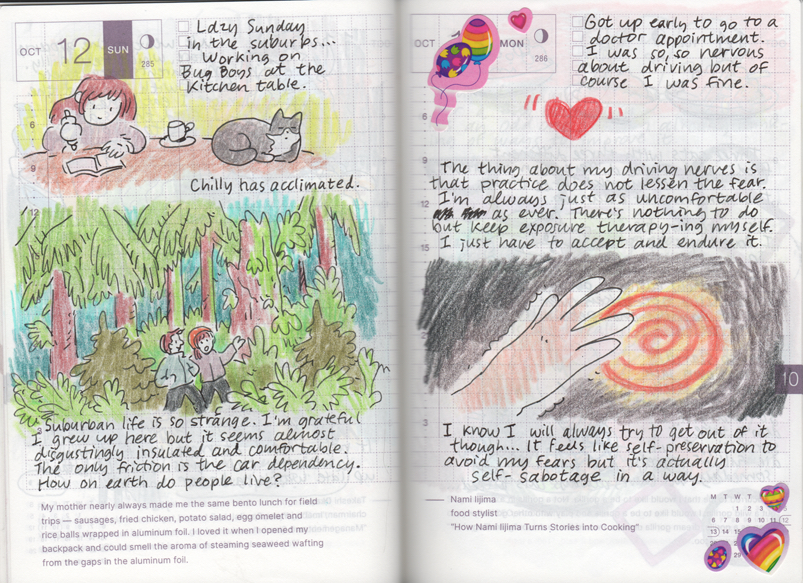 OCT 12 SUN
285
Lazy Sunday
in the suburbs...
Working on
Bug Boys at the
kitchen table.
6
9
Chilly has acclimated.
12
Suburban life is so strange. I'm grateful
I grew up here but it seems almost
disgustingly insulated and comfortable.
The only friction is the car dependency.
How on earth do people live?
My mother nearly always made me the same bento lunch for field
trips — sausages, fried chicken, potato salad, egg omelet and
rice balls wrapped in aluminum foil. I loved it when I opened my
backpack and could smell the aroma of steaming seaweed wafting
from the gaps in the aluminum foil.
OCT 1 MON
286
Got up early to go to a
doctor appointment.
I was so, so nervous
about driving but of
course I was fine.
6
9
The thing about my driving nerves is
that practice does not lessen the fear.
12
I'm always just as uncomfortable
as ever. There's nothing to do
but keep exposure therapy-ing myself.
15
I just have to accept and endure it.
10
3
I know I will always try to get out of it
though... It feels like self-preservation to
avoid my fears but it's actually
self-sabotage in a way.
Nami Iijima
food stylist
"How Nami Iijima Turns Stories into Cooking"
M T W T
1 2 3
6 7 8 9 10 11 12
13 14 15
20 21 22
29